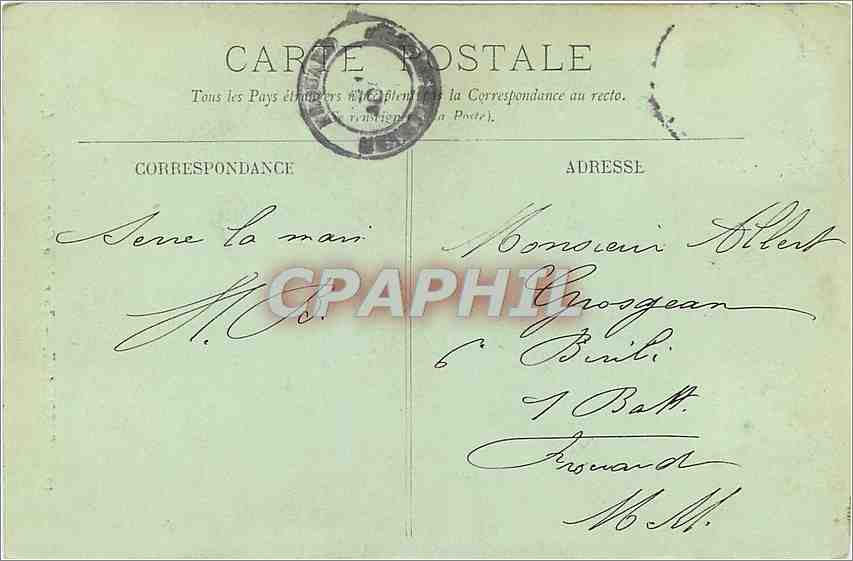 CARTE POSTALE
Tous les Pays étrangers n'acceptent pas la Correspondance au recto.
(Se renseigner à la Poste).
CORRESPONDANCE
Serre la main
H. B.
ADRESSE
Monsieur Albert
Grosgean
6e
1 Batt.
Frouard
M M.
CPAPHIL